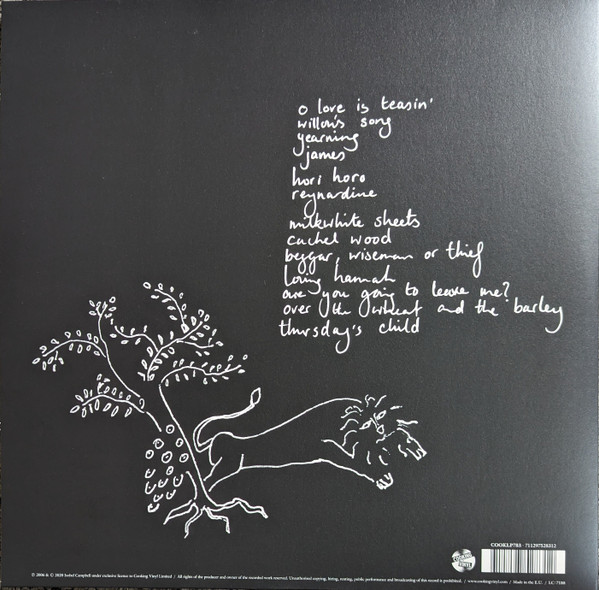 o love is teasin'
willow's song
yearning
james
hori horo
reynardine
milkwhite sheets
cachel wood
beggar, wiseman or thief
loving hannah
are you going to leave me?
over the wheat and the barley
thursday's child
COOKLP783 · 711297528312
COOKING VINYL
℗ 2006 & © 2020 Isobel Campbell under exclusive licence to Cooking Vinyl Limited / All rights of the producer and owner of the recorded work reserved. Unauthorised copying, hiring, renting, public performance and broadcasting of this record is prohibited. / www.cookingvinyl.com / Made in the E.U. / LC-7180